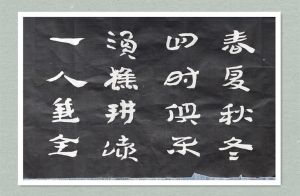 春夏秋冬
四时俱乐
渔樵耕读
一人兼全